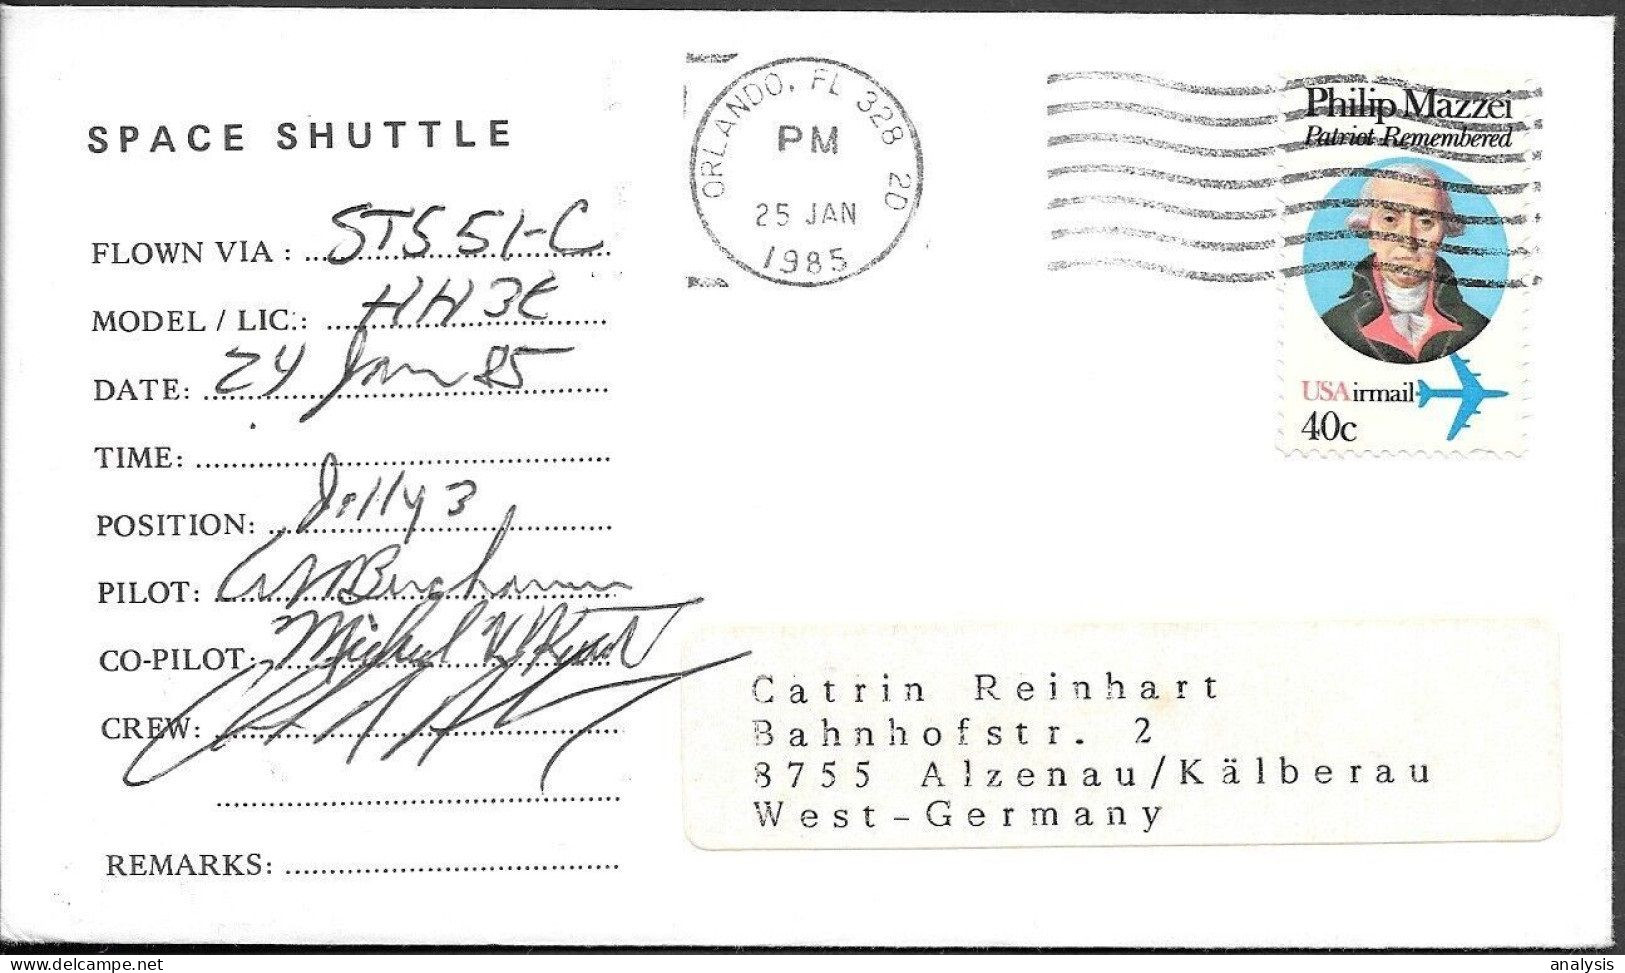 SPACE SHUTTLE
FLOWN VIA : STS 51-C
MODEL / LIC.: HH3E
DATE: 24 Jan 85
TIME:
POSITION: Jolly 3
PILOT:
CO-PILOT: Michael
CREW:
REMARKS:
ORLANDO, FL 328 20
PM
25 JAN
1985
Philip Mazzei
Patriot Remembered
USAirmail
40c
Catrin Reinhart
Bahnhofstr. 2
8755 Alzenau/Kälberau
West-Germany
delcampe.net
analysis